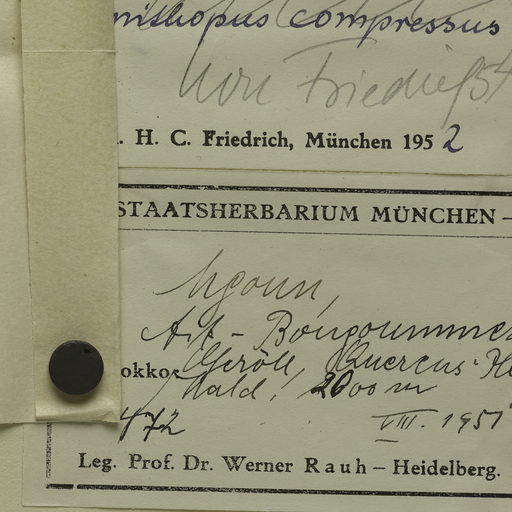 nithopus compressus
. H. C. Friedrich, München 1952
STAATSHERBARIUM MÜNCHEN –
Mgoun,
Ait – Bougoummes
okko: Geröll, Quercus-
Wald, 2000 m
472 VIII. 1951
Leg. Prof. Dr. Werner Rauh – Heidelberg.